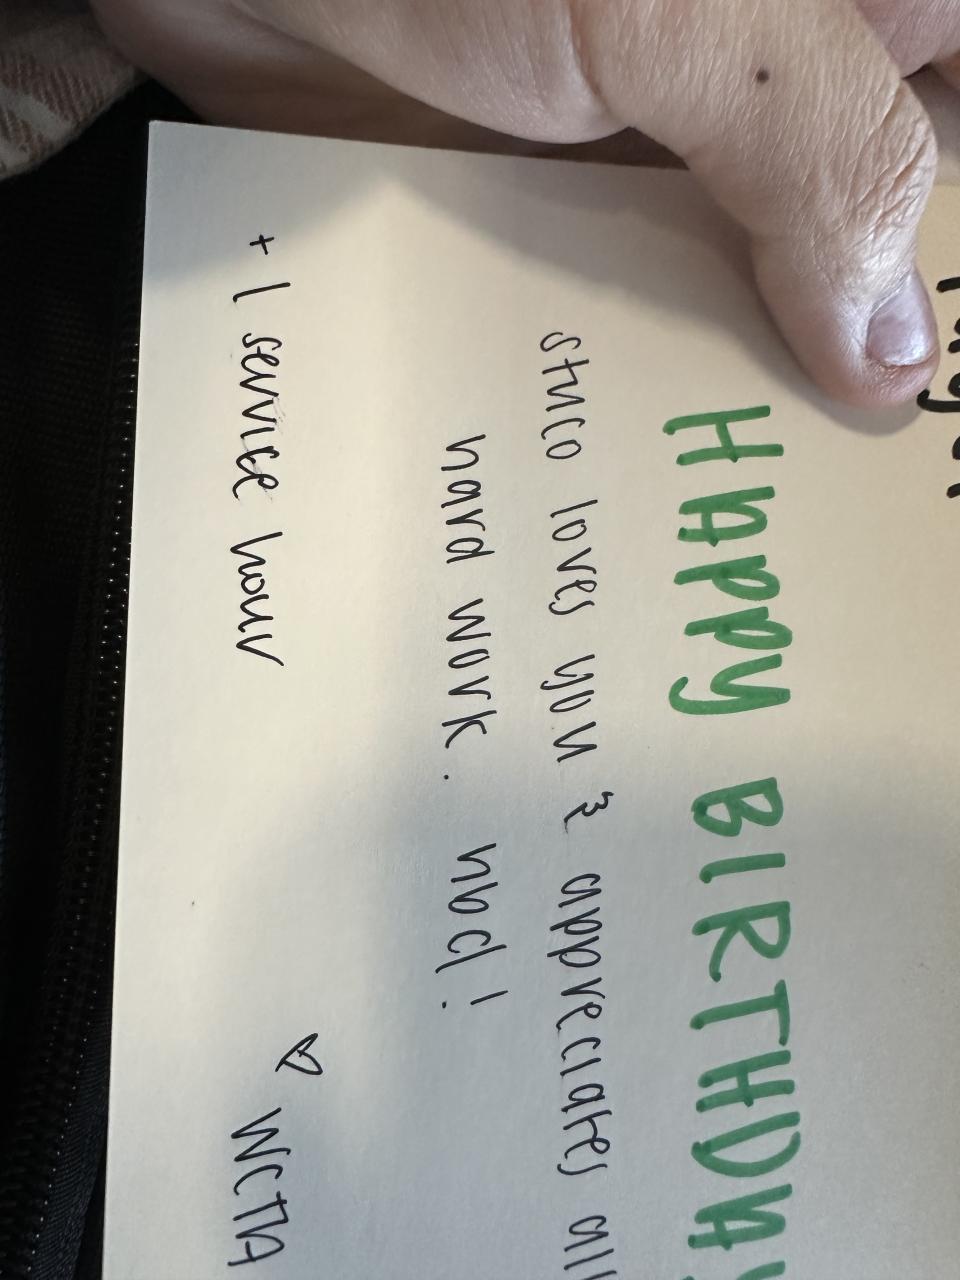 HAPPY BIRTHDAY
stuco loves you & appreciates all
hard work. hbd!
+ 1 service hour
♡ WCTA